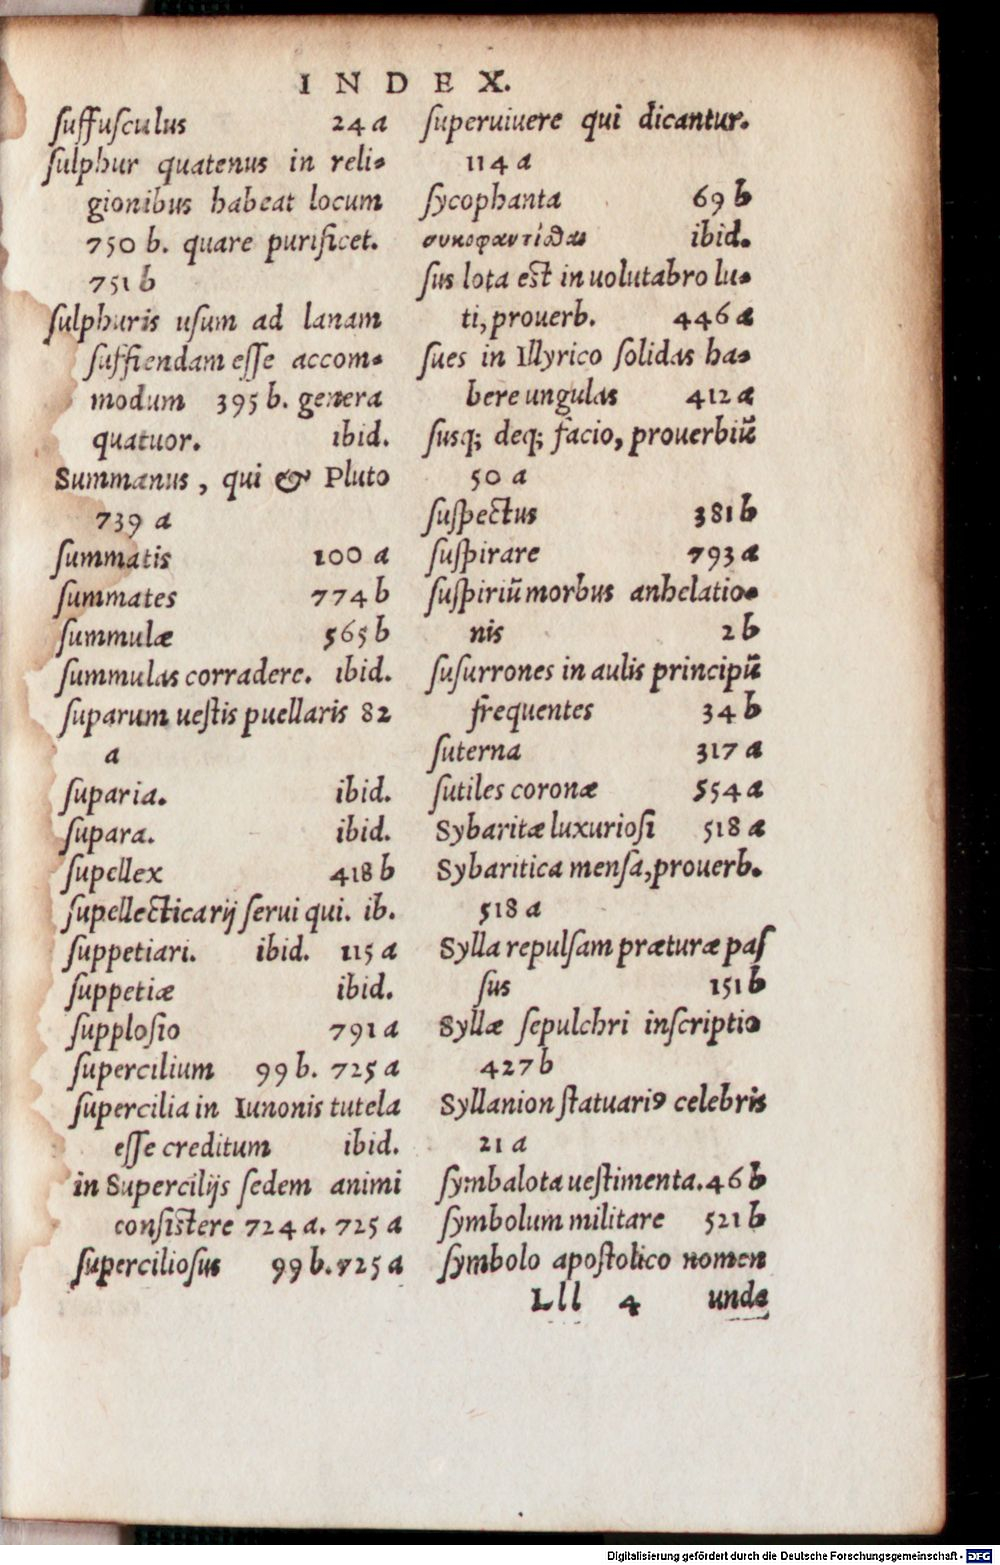 INDEX.
suffusculus 24 a
sulphur quatenus in reli-
gionibus habeat locum
750 b. quare purificet.
751 b
sulphuris usum ad lanam
suffiendam esse accom-
modum 395 b. genera
quatuor. ibid.
Summanus, qui & Pluto
739 a
summatis 100 a
summates 774 b
summulæ 565 b
summulas corradere. ibid.
suparum uestis puellaris 82
a
suparia. ibid.
supara. ibid.
supellex 418 b
supellecticarij serui qui. ib.
suppetiari. ibid. 115 a
suppetiæ ibid.
supplosio 791 a
supercilium 99 b. 725 a
supercilia in Iunonis tutela
esse creditum ibid.
in Supercilijs sedem animi
consistere 724 a. 725 a
superciliosus 99 b. 725 a
superuiuere qui dicantur.
114 a
sycophanta 69 b
συκοφαντίσθαι ibid.
sus lota est in uolutabro lu-
ti, prouerb. 446 a
sues in Illyrico solidas ha-
bere ungulas 412 a
susq; deq; facio, prouerbiũ
50 a
suspectus 381 b
suspirare 793 a
suspiriũ morbus anhelatio-
nis 2 b
susurrones in aulis principũ
frequentes 34 b
suterna 317 a
sutiles coronæ 554 a
Sybaritæ luxuriosi 518 a
Sybaritica mensa, prouerb.
518 a
Sylla repulsam præturæ pas
sus 151 b
Syllæ sepulchri inscriptio
427 b
Syllanion statuariꝰ celebris
21 a
symbalota uestimenta. 46 b
symbolum militare 521 b
symbolo apostolico nomen
Lll 4 unde
Digitalisierung gefördert durch die Deutsche Forschungsgemeinschaft - DFG